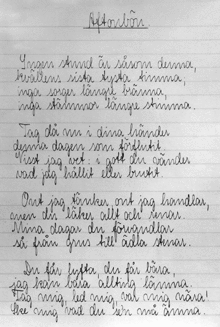 Aftonbön
Ingen stund är såsom denna,
kvällens sista tysta timma,
inga sorger längre bränna,
inga stämmor längre stimma.
Tag då nu i dina händer
denna dagen som förflutit.
Visst jag vet: i gott du vänder
vad jag hållit eller brutit.
Ont jag tänker, ont jag handlar,
men du läker allt och renar.
Mina dagar du förvandlar
så från grus till ädla stenar.
Du får lyfta, du får bära,
jag kan bara allting lämna.
Tag mig, led mig, var mig nära!
Ske mig vad du sen må ämna.